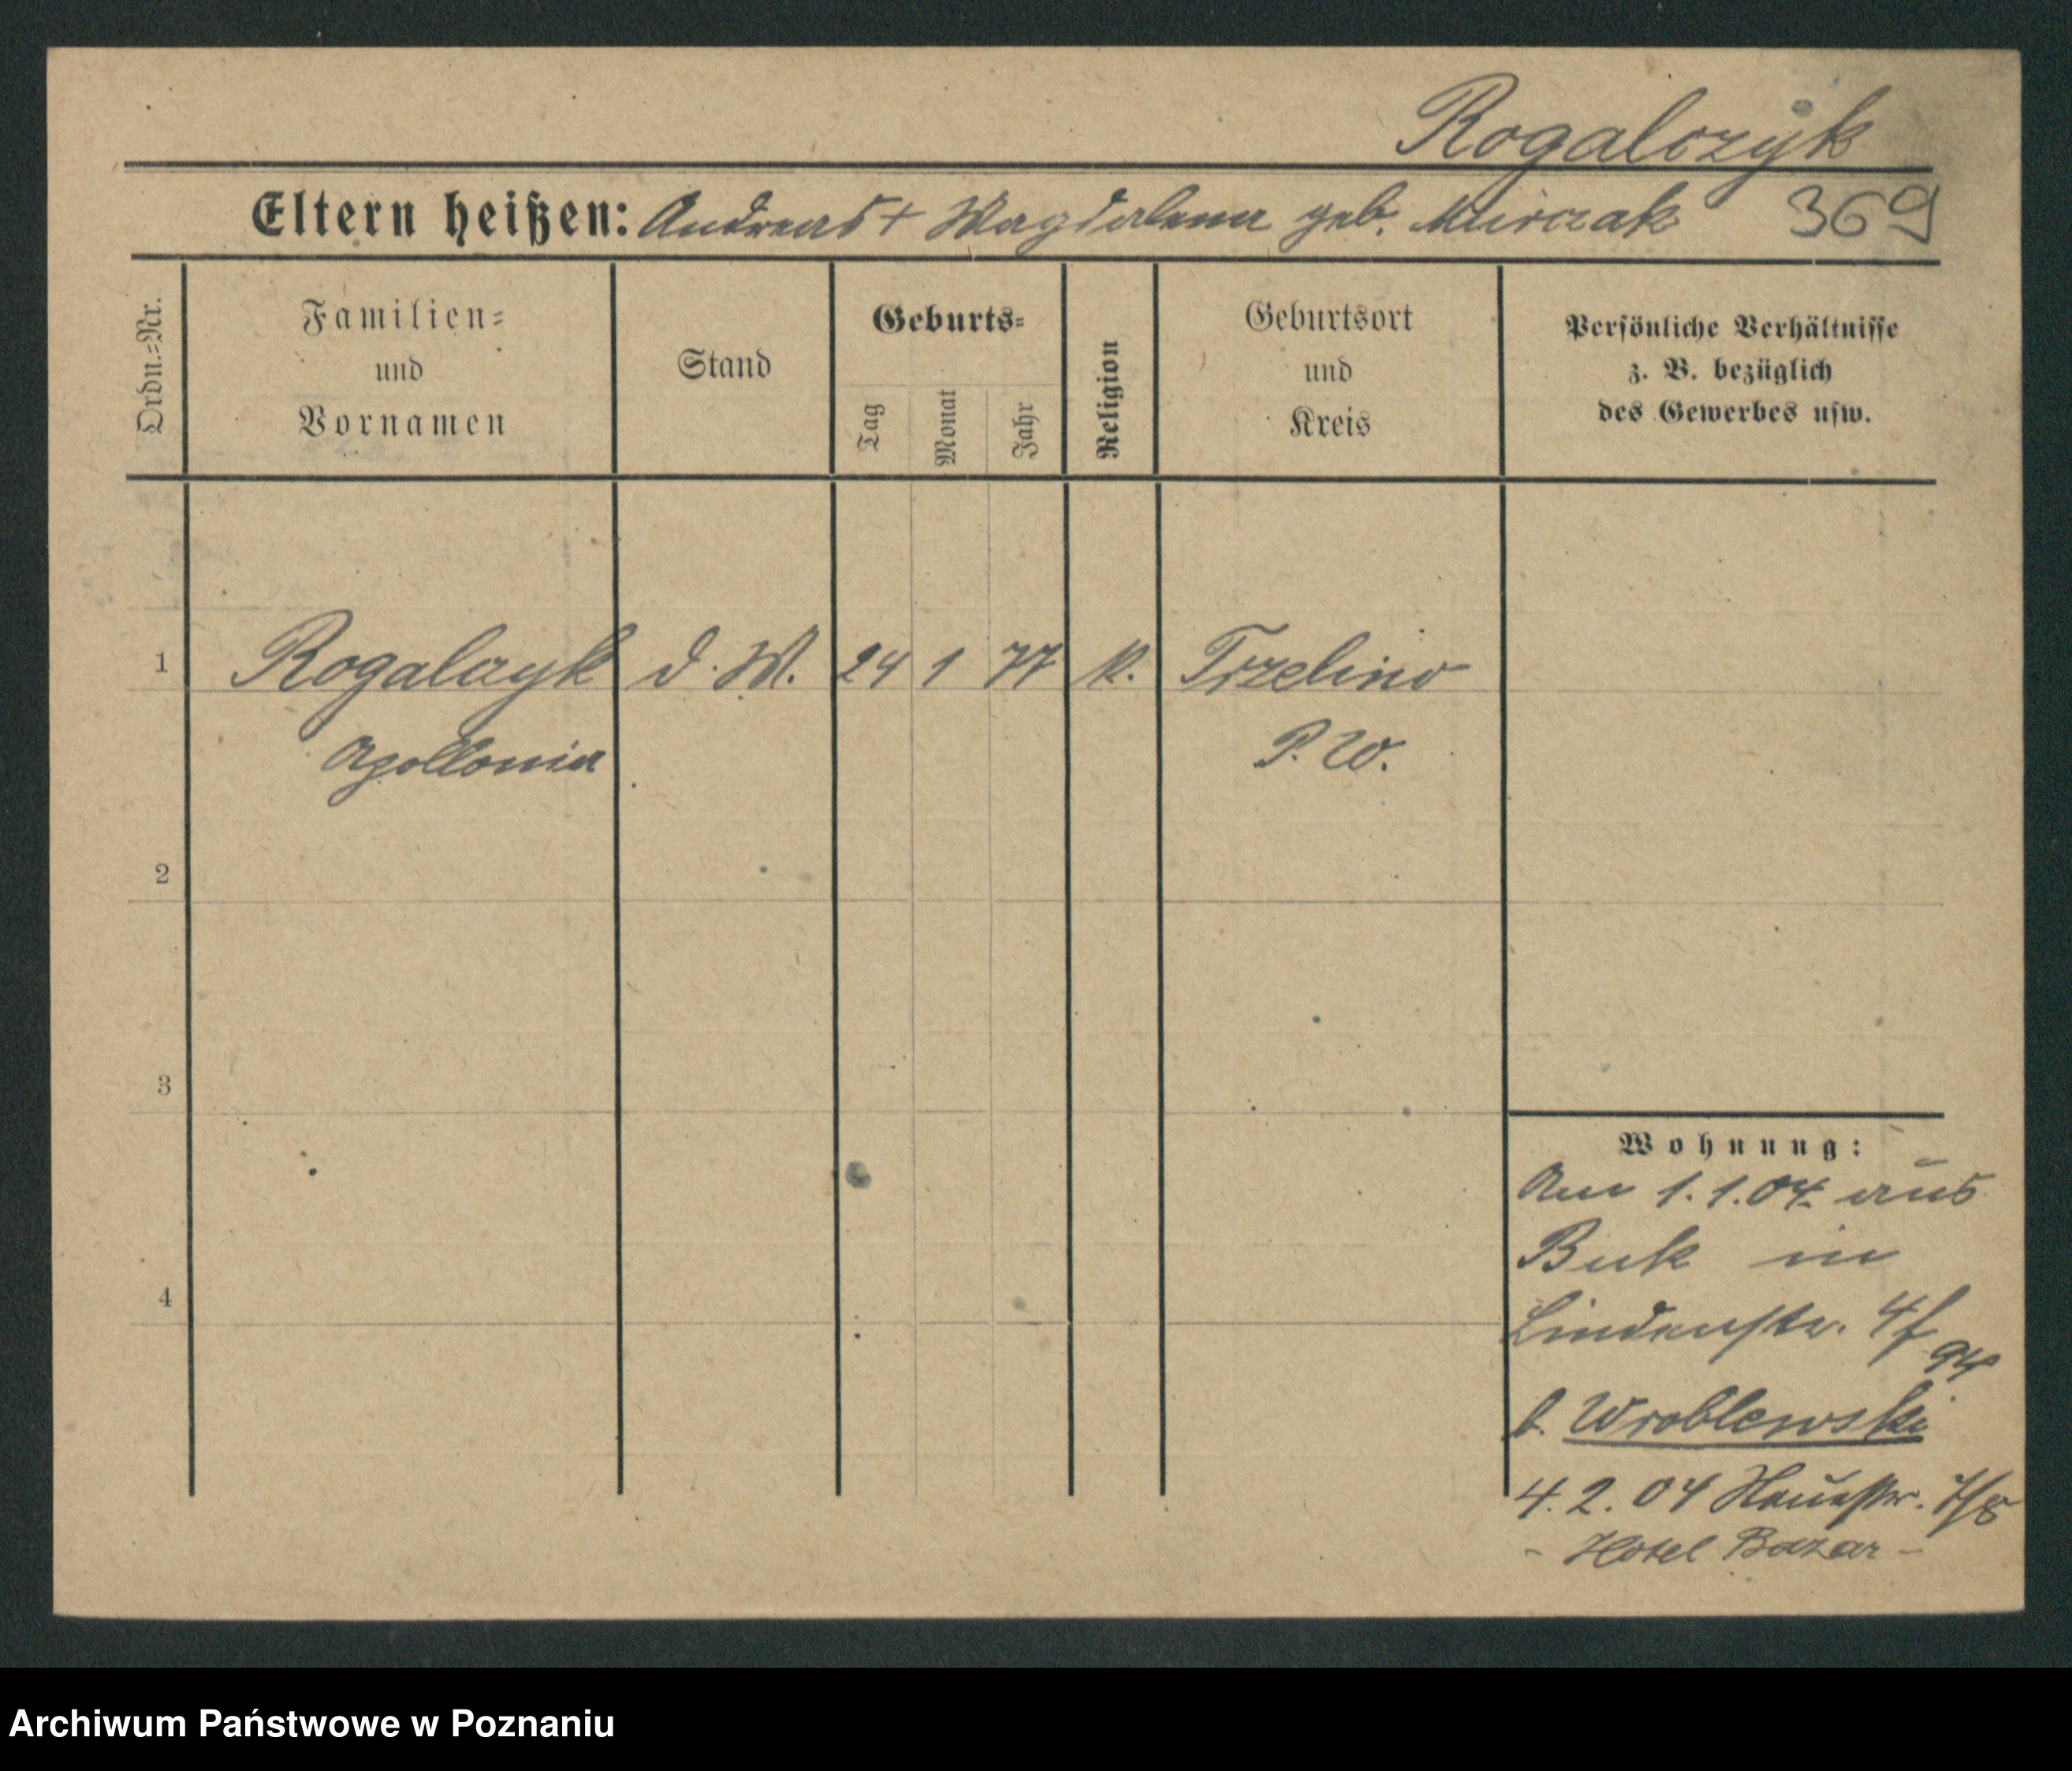 Rogalczyk
Eltern heißen: Andreas + Magdalena geb. Murczak 369
Ordn.=Nr.
Familien=
und
Vornamen
Stand
Geburts=
Tag
Monat
Jahr
Religion
Geburtsort
und
Kreis
Persönliche Verhältnisse
z. B. bezüglich
des Gewerbes usw.
1 Rogalczyk d. M. 24 1 77 K. Trzelino
Apollonia P. W.
2
3
4
Wohnung:
Am 1.1.04 aus
Buk in
Lindenstr. 4
b. Wroblewski
4. 2. 04 Neuestr. 7/8
- Hotel Bazar -
Archiwum Państwowe w Poznaniu